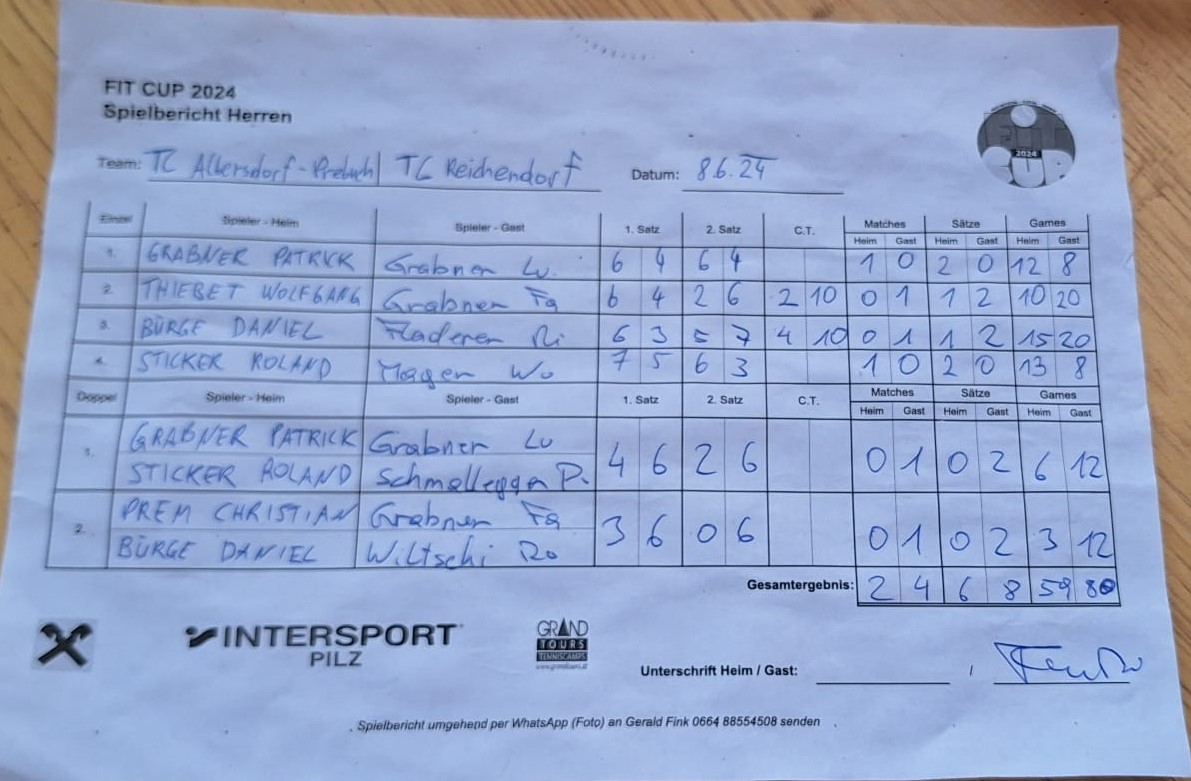 FIT CUP 2024
Spielbericht Herren
FIT
2024
Team: TC Albersdorf-Prebuch | TC Reichendorf Datum: 8.6.24
Einzel Spieler - Heim Spieler - Gast 1. Satz 2. Satz C.T. Matches Sätze Games
Heim Gast Heim Gast Heim Gast
1. GRABNER PATRICK Grabner Lu. 6 4 6 4 1 0 2 0 12 8
2. THIEBET WOLFGANG Grabner Fa 6 4 2 6 2 10 0 1 1 2 10 20
3. BÜRGE DANIEL Fladerer Ri 6 3 5 7 4 10 0 1 1 2 15 20
4. STICKER ROLAND Mager Wo 7 5 6 3 1 0 2 0 13 8
Doppel Spieler - Heim Spieler - Gast 1. Satz 2. Satz C.T. Matches Sätze Games
Heim Gast Heim Gast Heim Gast
1. GRABNER PATRICK Grabner Lu
STICKER ROLAND Schmallegger P. 4 6 2 6 0 1 0 2 6 12
2. PREM CHRISTIAN Grabner Fa
BÜRGE DANIEL Wiltschi Ro 3 6 0 6 0 1 0 2 3 12
Gesamtergebnis: 2 4 6 8 59 80
INTERSPORT
PILZ
GRAND
TOURS
TENNISCAMPS
www.grandtours.at
Unterschrift Heim / Gast: /
Spielbericht umgehend per WhatsApp (Foto) an Gerald Fink 0664 88554508 senden